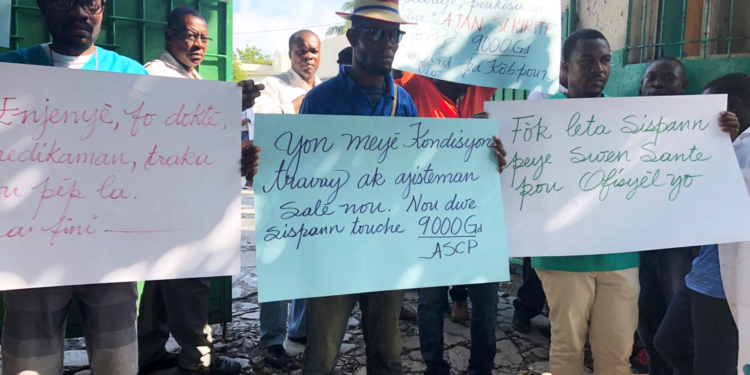 Enjenyè, fo doktè,
medikaman, traka
ou pèp la.
fini
Yon meyè Kondisyon
travay ak ajisteman
salè nou. Nou dwe
sispann touche 9000Gd
ASCP
poukisa
AJAN SEKIRITE
9000Gd
Fòk leta sispann
peye Swen Sante
pou Ofisyèl yo